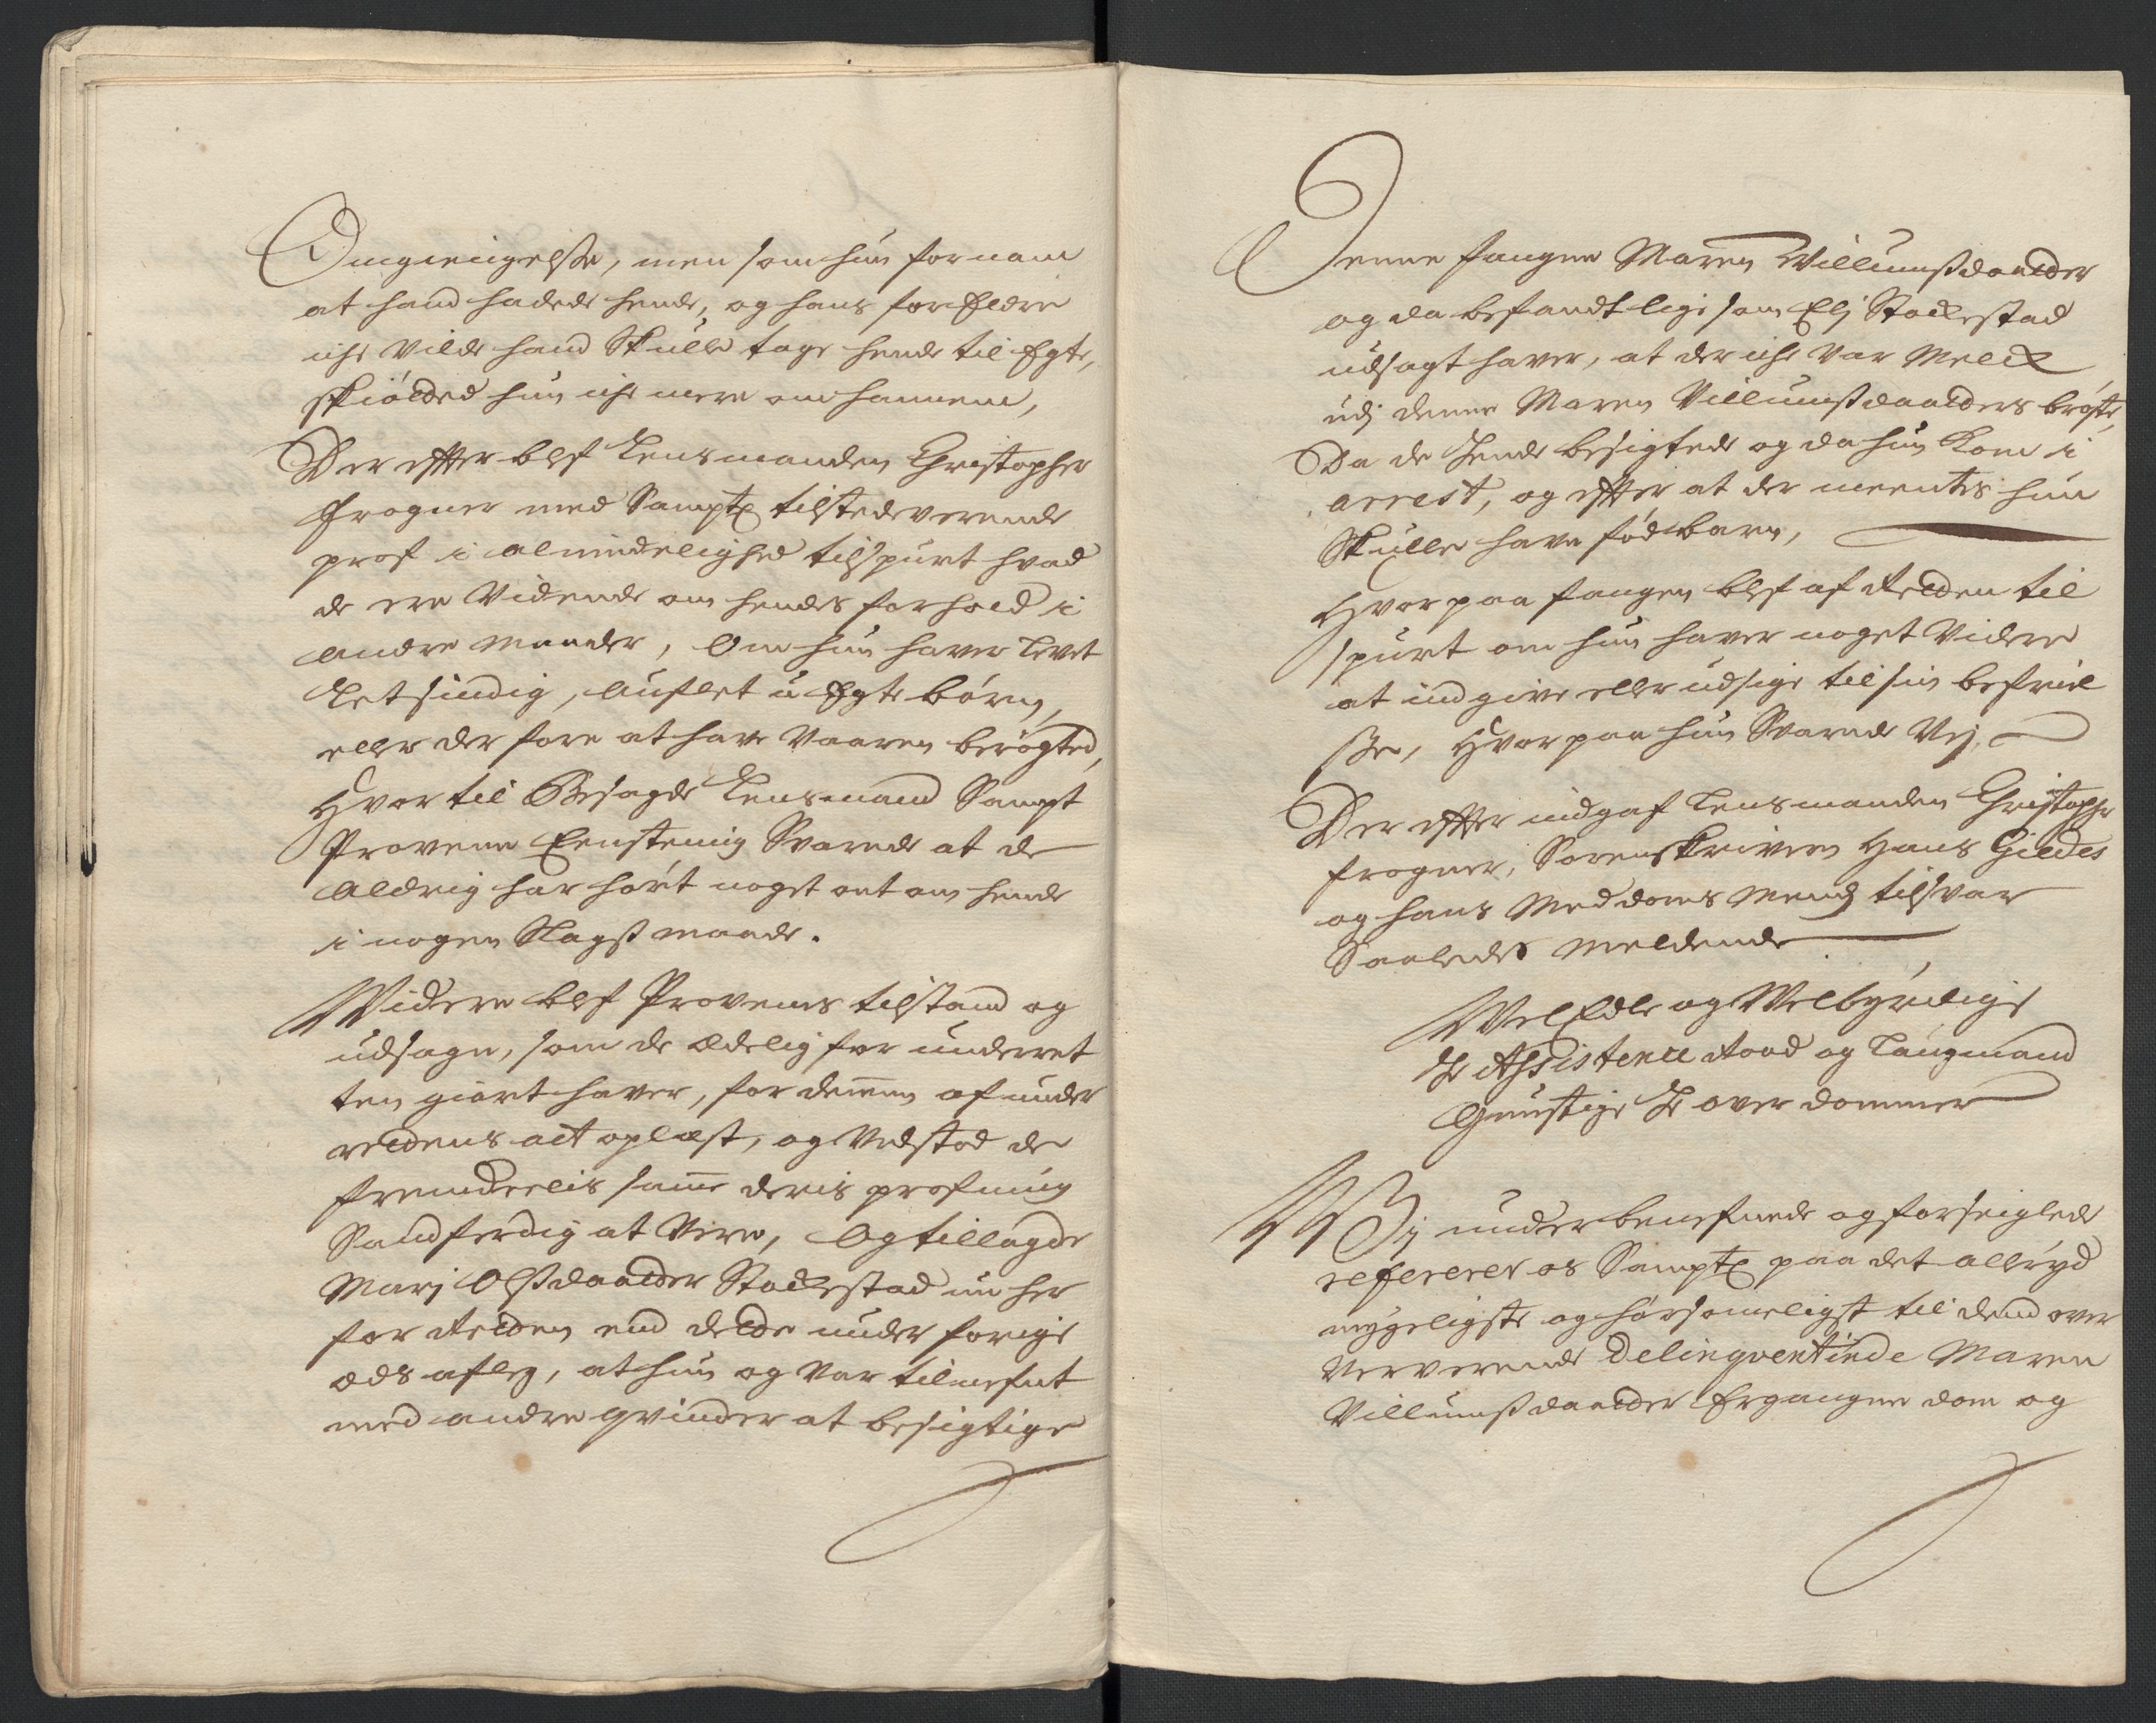 Omgiengelsse, men som hun fornam
at hand hadede hende, og hans forEldre
iche Vilde hand Skulle tage hende til Egte,
skiøtted hun iche mere om hannem,
Der effter blef Lensmanden Christopher
Frogner med Samptl: tilstedeverende
prof i almindelighed tilspurt hvad
de ere Vidende om hendes forhold i
andre maader, Om hun haver Levet
Letsindig, Auflet u Egte børn,
eller der fore at have Vaaren berøgted,
Hvor til Besagde Lensmand Sampt
Provene Eenstemig Svarede at de
Aldrig har hørt noget ont om hende
i nogen Slagß maade.
Widere blef Provenes tilstand og
udsagn, som de Edelig for underret
ten giørt haver, for dennem af under
rettens act oplæst, og Vedstod de
fremdeelis samme deris profning
Sandferdig at Vere, Og tillagde
Marj Olßdaatter Stockestad nu her
for Retten end dette under forige
Eds aflæg, at hun og Var tilnefnt
med andre qvinder at besigtige
Denne fangne Maren Willumßdaatter
og da befandt lige som Elj Stockestad
udsagt haver, at der iche Var Melck
udj denne Maren Villumßdaatters brøste,
Da de Hende besigtede og da hun Kom i
arrest, og effter at der meentes hun
Skulle have fød barn,
Hvor paa fangen blef af Retten til
spurt om hun haver noget Videre
at indgive eller udsige til sin befriel
sse, Hvor paa hun Svarede Nej,
Der effter indgaf Lensmanden Christopher
Frogner, Sorenskriveren Hans Gieldes
og hans Meddoms Mends tilsvar
Saaledes Meldende
WelEdle og Welbyrdige
Hr Assistence Raad og Laugmand
Gunstige Hr over dommer
Wj underbenefnede og forseiglede
refererer os Samptl: paa det allerýd
mygeligste og hørsommeligst til dend over
Ververende Delinqventinde Maren
Villumßdaatter Ergangne dom og